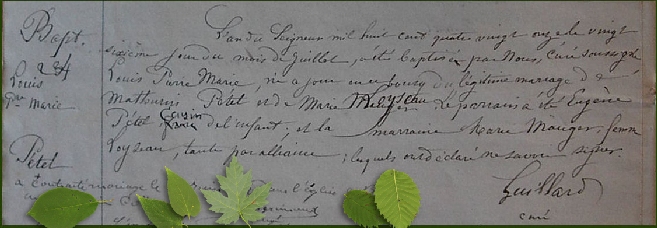 Bapt.
234
Louis
Pre Marie
Pétel
L'an du Seigneur mil huit cent quatre vingt onze le vingt
sixième jour du mois de Juillet, a été baptisé par Nous, Curé soussigné
Louis Pierre Marie, né a jour du légitime mariage de
Mathurin Pétel et de Marie Loyseau. Le parrain a été Eugène
Pétel, cousin de l'enfant; et la marraine Marie Mauger, femme
Loyseau, tante par alliance; lesquels ont déclaré ne savoir signer.
Guillard
curé
a contracté mariage le dans l'Église